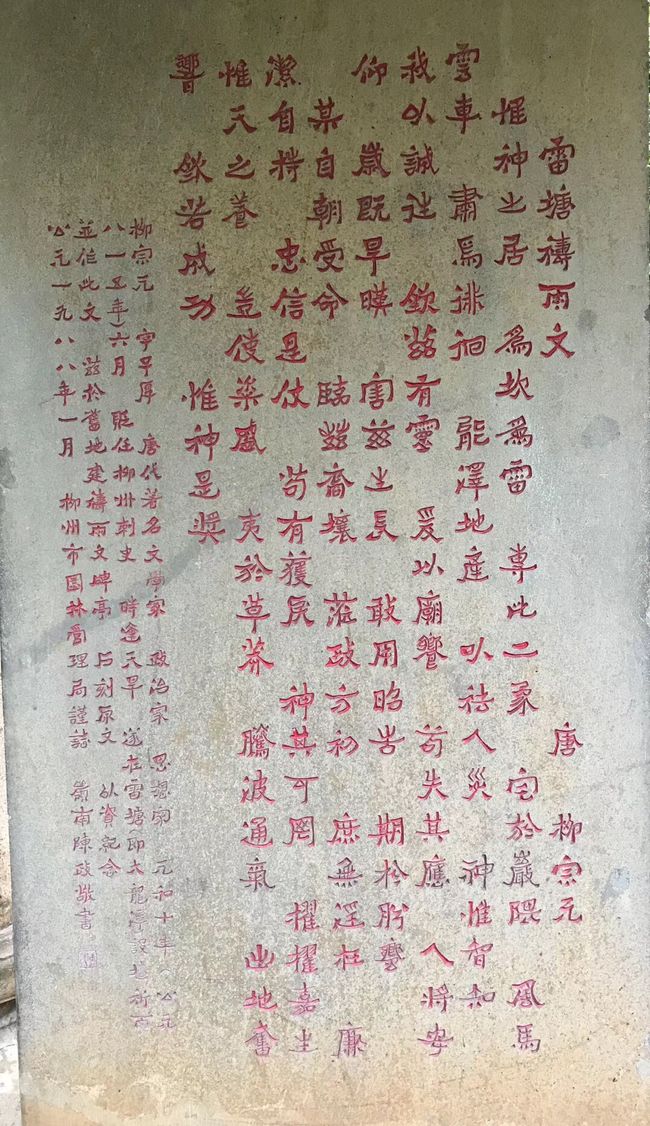 雷塘禱雨文 唐 柳宗元
惟神之居 為坎為雷 專此二象 宅於巖隈 風馬
雲車 肅焉徘徊 能澤地產 以祛人災 神惟智知
我以誠往 欽茲有靈 爰以廟饗 苟失其應 人將安
仰 歲既旱暵 害茲生長 敢用昭告 期於肸蠁
某自朝受命 臨茲裔壤 蒞政方初 庶無淫枉 廉
潔自持 忠信是仗 苟有獲戾 神其可罔 擢擢嘉生
惟天之養 豈使粢盛 夷於草莽 騰波通氣 出地奮
響 欽若成功 惟神是獎
柳宗元 字子厚 唐代著名文學家 政治家 思想家 元和十年（公元
八一五年）六月 貶任柳州刺史 時逢天旱 遂在雷塘（即大龍潭）設壇祈雨
並作此文 茲於舊地建禱雨文碑亭 刻原文 以資紀念
公元一九八八年一月 柳州市園林管理局謹誌 嶺南陳政敬書